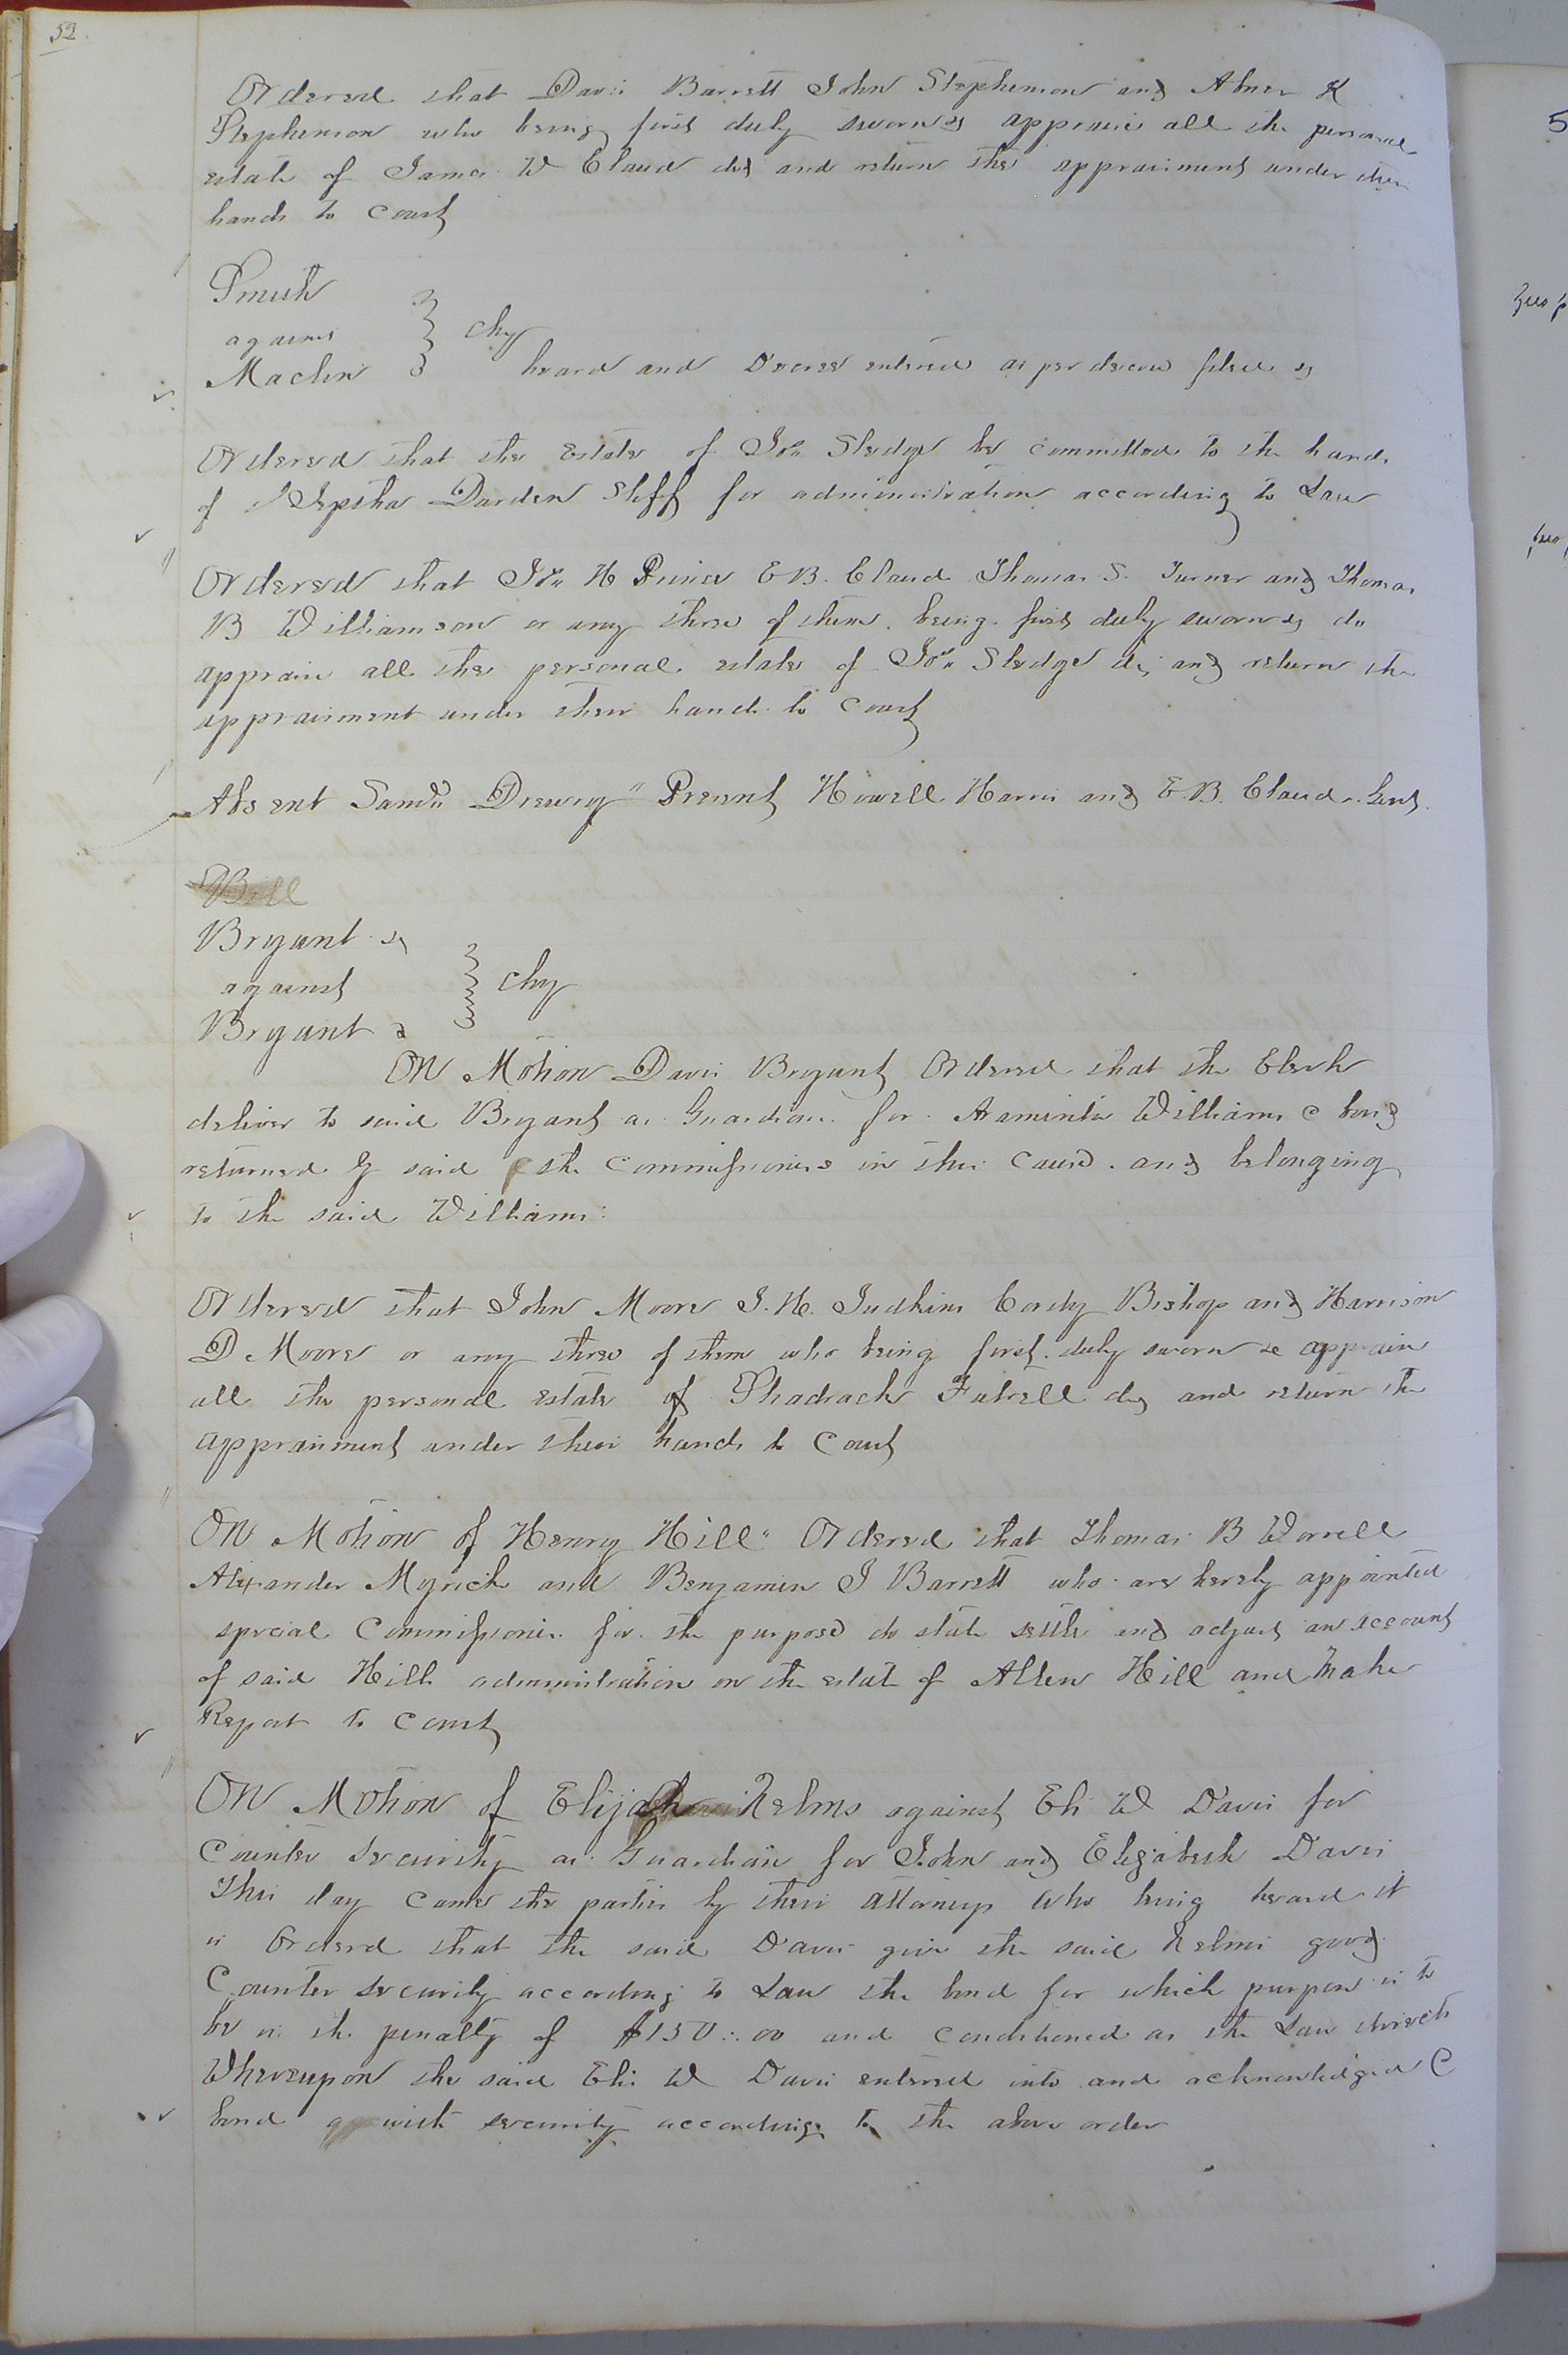 52.
Ordered that Davis Barrett John Stephenson and Abner K
Stephenson who being first duly sworn &c appraise all the personal
estate of James W Claud decd and return the appraisment under their
hands to Court
Smith
against } Chy
Maclin heard and Decree entered as per decree filed &c
Ordered that the Estate of Jno. Sledge be committed to the hands
of Jeptha Darden Shff for administration according to Law
Ordered that Jno. H Prince E B. Claud Thomas S. Turner and Thomas
B Williamson or any three of them being first duly sworn &c do
appraise all the personal estate of Jno. Sledge dec and return the
appraisment under their hands to Court
Absent Saml. Drewry " Present Howell Harris and E. B. Claud Gent.
Bill
Bryant &c
against } Chy
Bryant &
On Motion Davis Bryant Ordered that the Clerk
deliver to said Bryant as Guardian for Araminta Williams a bond
returned by said the Commissioners in this cause and belonging
to the said Williams.
Ordered that John Moore J. H. Judkins Cordy Bishop and Harrison
D Moore or any three of them who being first duly sworn &c appraise
all the personal estate of Shadrach Futrell dec and return the
appraisment under their hands to Court
On Motion of Henry Hill " Ordered that Thomas B Worrell
Alexander Myrick and Benjamin J Barrett who are hereby appointed
special Commissioners for the purpose do state settle and adjust an account
of said Hills administration on the estate of Allen Hill and make
Report to Court
On Motion of Elijah Nelms against Eli W Davis for
Counter Security as Guardian for John and Elizabeth Davis
This day came the parties by their attorneys who being heard it
is Ordered that the said Davis give the said Nelms good
Counter security according to Law the bond for which purpose is to
be in the penalty of $150..00 and conditioned as the Law directs
Whereupon the said Eli W Davis entered into and acknowledged a
bond with security according to the above order